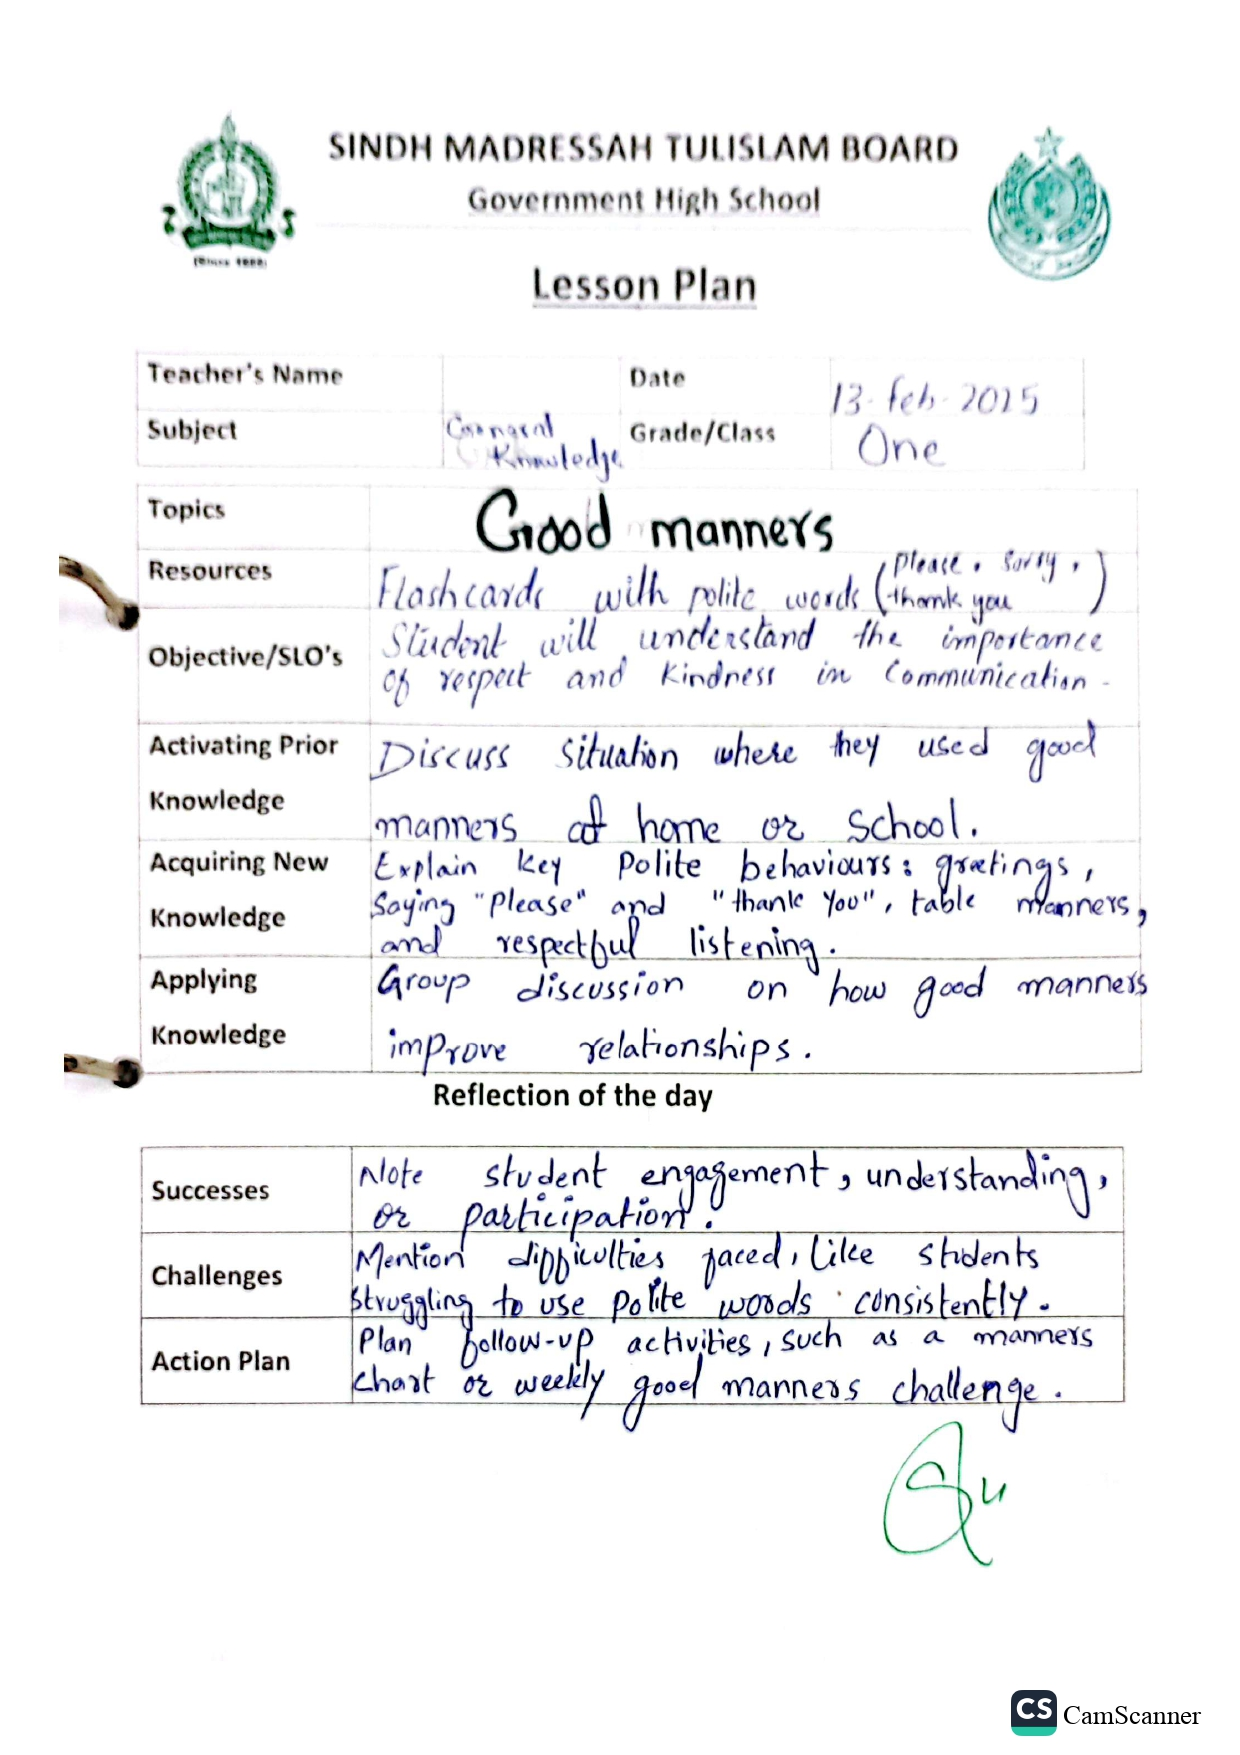 SINDH MADRESSAH TULISLAM BOARD
Government High School
(Since 1885)
Lesson Plan
Teacher's Name
Date 13-Feb-2025
Subject General Knowledge
Grade/Class One
Topics Good manners
Resources Flashcards with polite words (Please, Sorry, thank you)
Objective/SLO's Student will understand the importance
of respect and Kindness in Communication-
Activating Prior Discuss situation where they used good
Knowledge manners at home or school.
Acquiring New Explain key Polite behaviours: greetings,
Knowledge Saying "Please" and "thank You", table manners,
and respectful listening.
Applying Group discussion on how good manners
Knowledge improve relationships.
Reflection of the day
Successes Note student engagement, understanding,
or participation.
Challenges Mention difficulties faced, like students
struggling to use polite words consistently.
Action Plan Plan follow-up activities, such as a manners
chart or weekly good manners challenge.
CS CamScanner